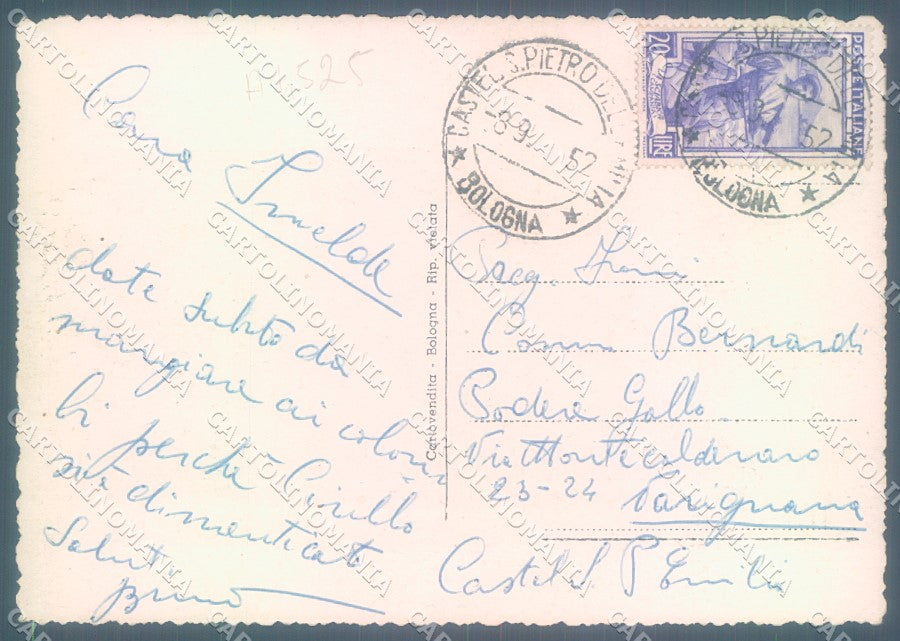 A 525
Cara
Imelde
date subito da
mangiare ai colom
bi perché Cirillo
si è dimenticato
Saluti
Bruno
Cartovendita - Bologna - Rip. vietata
CASTEL S. PIETRO DELL'EMILIA
8-9 52
★ BOLOGNA ★
POSTE ITALIANE
20 LIRE
CASTEL S. PIETRO DELL'EMILIA
52
★ BOLOGNA ★
Preg.
Bernardi
Podere Gallo
Via Monte calderaro
23-24 Varignana
Castel S P Emilia
CARTOLINOMANIA